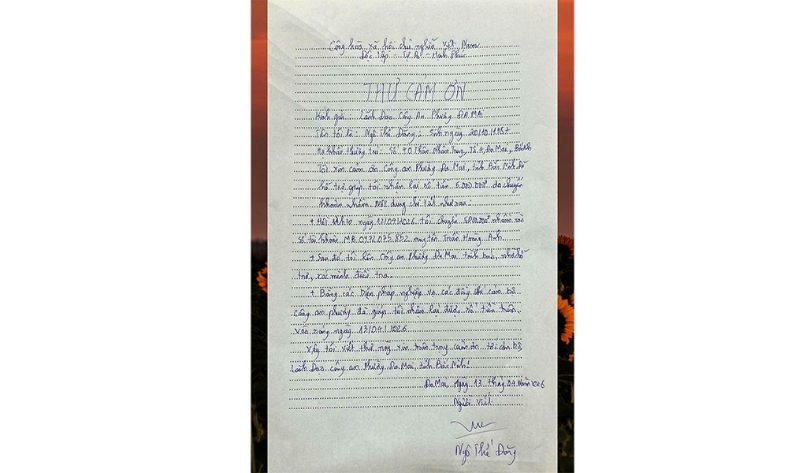 Cộng hòa xã hội chủ nghĩa Việt Nam
Độc lập - Tự do - Hạnh Phúc
THƯ CẢM ƠN
Kính gửi: Lãnh Đạo Công An Phường ĐA MAI
Tên tôi là: Ngô Thế Đăng; Sinh ngày 20/10/
thường trú: Số 40 Thân Nhân Trung, Tổ 4, Đa Mai, Bắc Ninh
Tôi xin cảm ơn Công an Phường Đa Mai, tỉnh Bắc Ninh đã
hỗ trợ giúp tôi nhận lại số tiền 5.000.000đ do chuyển
khoản nhầm. Nội dung chi tiết như sau:
+ Hồi ngày 12/04/2026 tôi chuyển nhầm vào
số tài khoản MB 0976.075.852 mang tên Trần Hoàng Anh
+ Sau đó tôi lên Công an Phường Đa Mai trình báo, nhờ hỗ
trợ, xác minh điều tra.
+ Bằng các biện pháp nghiệp vụ các đồng chí cán bộ
công an phường đã giúp tôi nhận lại được số tiền trên,
vào sáng ngày 13/04/2026.
Vậy tôi viết thư này xin trân trọng cảm ơn tới cán bộ,
Lãnh Đạo công an Phường Đa Mai, tỉnh Bắc Ninh!
Đa Mai, Ngày 13 tháng 04 năm 2026
Người viết
Ngô Thế Đăng